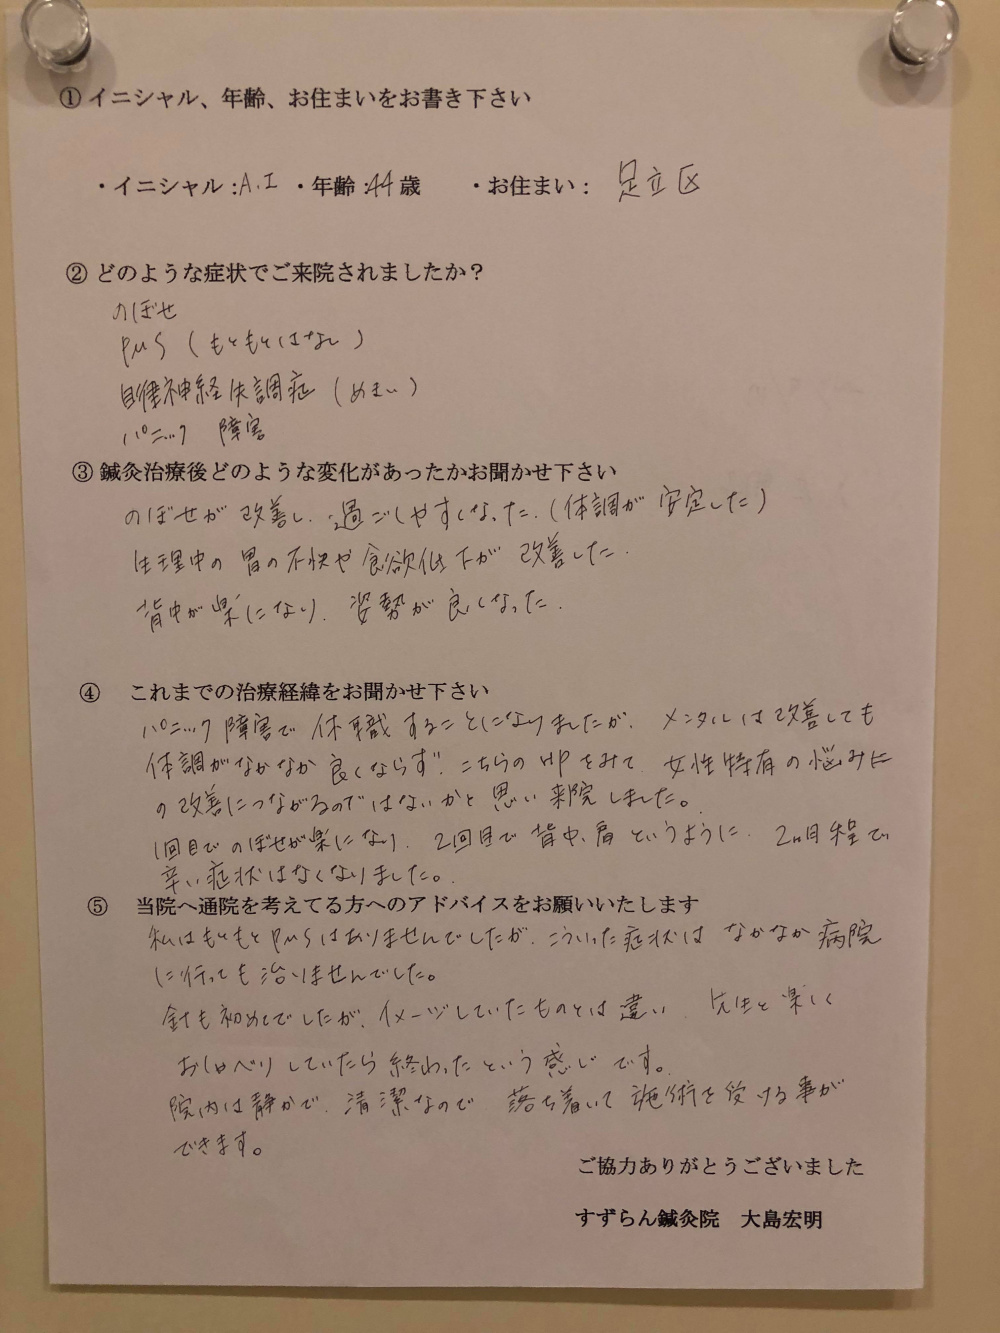 ① イニシャル、年齢、お住まいをお書き下さい
・イニシャル：A.I ・年齢：44歳 ・お住まい： 足立区
② どのような症状でご来院されましたか？
のぼせ
PMS（もともとはなし）
自律神経失調症（めまい）
パニック 障害
③ 鍼灸治療後どのような変化があったかお聞かせ下さい
のぼせが改善し、過ごしやすくなった。（体調が安定した）
生理中の胃の不快や食欲低下が改善した。
背中が楽になり、姿勢が良くなった。
④ これまでの治療経緯をお聞かせ下さい
パニック障害で休職することになりましたが、メンタルは改善しても
体調がなかなか良くならず、こちらのHPをみて、女性特有の悩みに
の改善につながるのではないかと思い来院しました。
1回目でのぼせが楽になり、2回目で背中、肩というように、2ヵ月程で
辛い症状はなくなりました。
⑤ 当院へ通院を考えてる方へのアドバイスをお願いいたします
私はもともとPMSはありませんでしたが、こういった症状はなかなか病院
に行っても治りませんでした。
針も初めてでしたが、イメージしていたものとは違い、先生と楽しく
おしゃべりしていたら終わったという感じです。
院内は静かで、清潔なので落ち着いて施術を受ける事が
できます。
ご協力ありがとうございました
すずらん鍼灸院 大島宏明